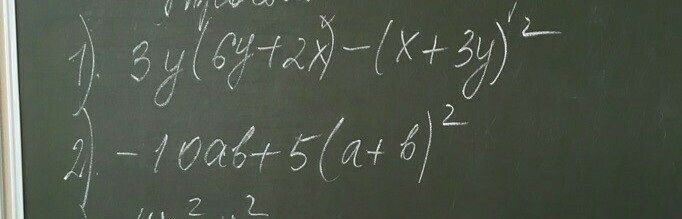 1). 3y(6y+2x)-(x+3y)²
2). -10ab+5(a+b)²